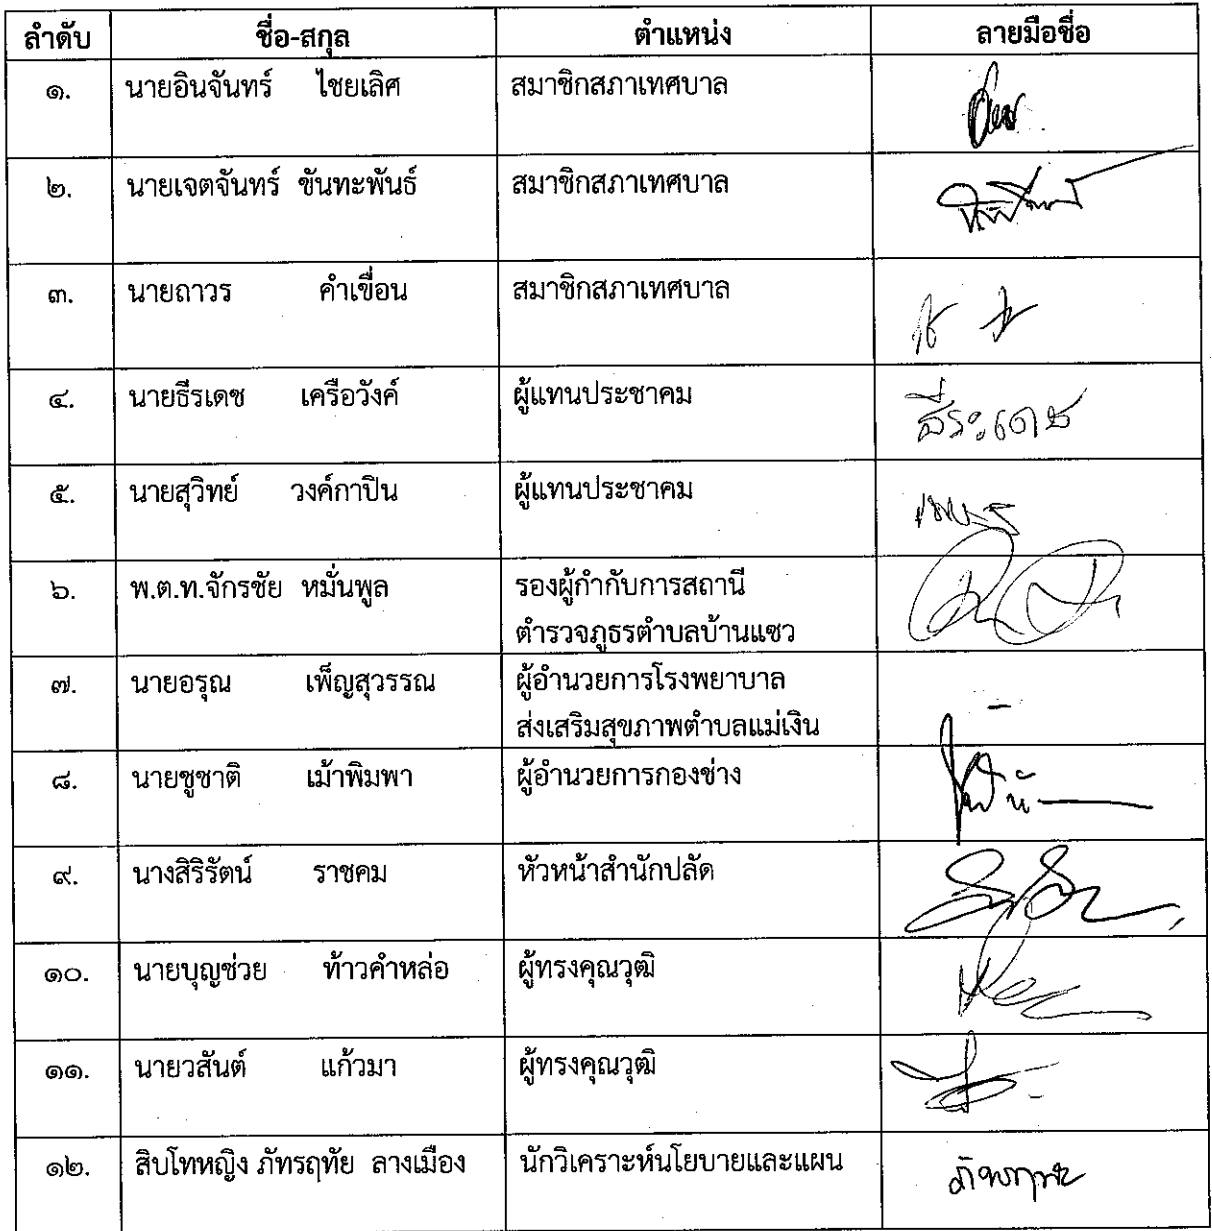 ลำดับ ชื่อ-สกุล ตำแหน่ง ลายมือชื่อ
๑. นายอินจันทร์ ไชยเลิศ สมาชิกสภาเทศบาล
๒. นายเจตจันทร์ ขันทะพันธ์ สมาชิกสภาเทศบาล
๓. นายถาวร คำเขื่อน สมาชิกสภาเทศบาล
๔. นายธีรเดช เครือวังค์ ผู้แทนประชาคม ธีระเดช
๕. นายสุวิทย์ วงค์กาปิน ผู้แทนประชาคม
๖. พ.ต.ท.จักรชัย หมั่นพูล รองผู้กำกับการสถานี
ตำรวจภูธรตำบลบ้านแซว
๗. นายอรุณ เพ็ญสุวรรณ ผู้อำนวยการโรงพยาบาล
ส่งเสริมสุขภาพตำบลแม่เงิน
๘. นายชูชาติ เม้าพิมพา ผู้อำนวยการกองช่าง
๙. นางสิริรัตน์ ราชคม หัวหน้าสำนักปลัด
๑๐. นายบุญช่วย ท้าวคำหล่อ ผู้ทรงคุณวุฒิ
๑๑. นายวสันต์ แก้วมา ผู้ทรงคุณวุฒิ
๑๒. สิบโทหญิง ภัทรฤทัย ลางเมือง นักวิเคราะห์นโยบายและแผน